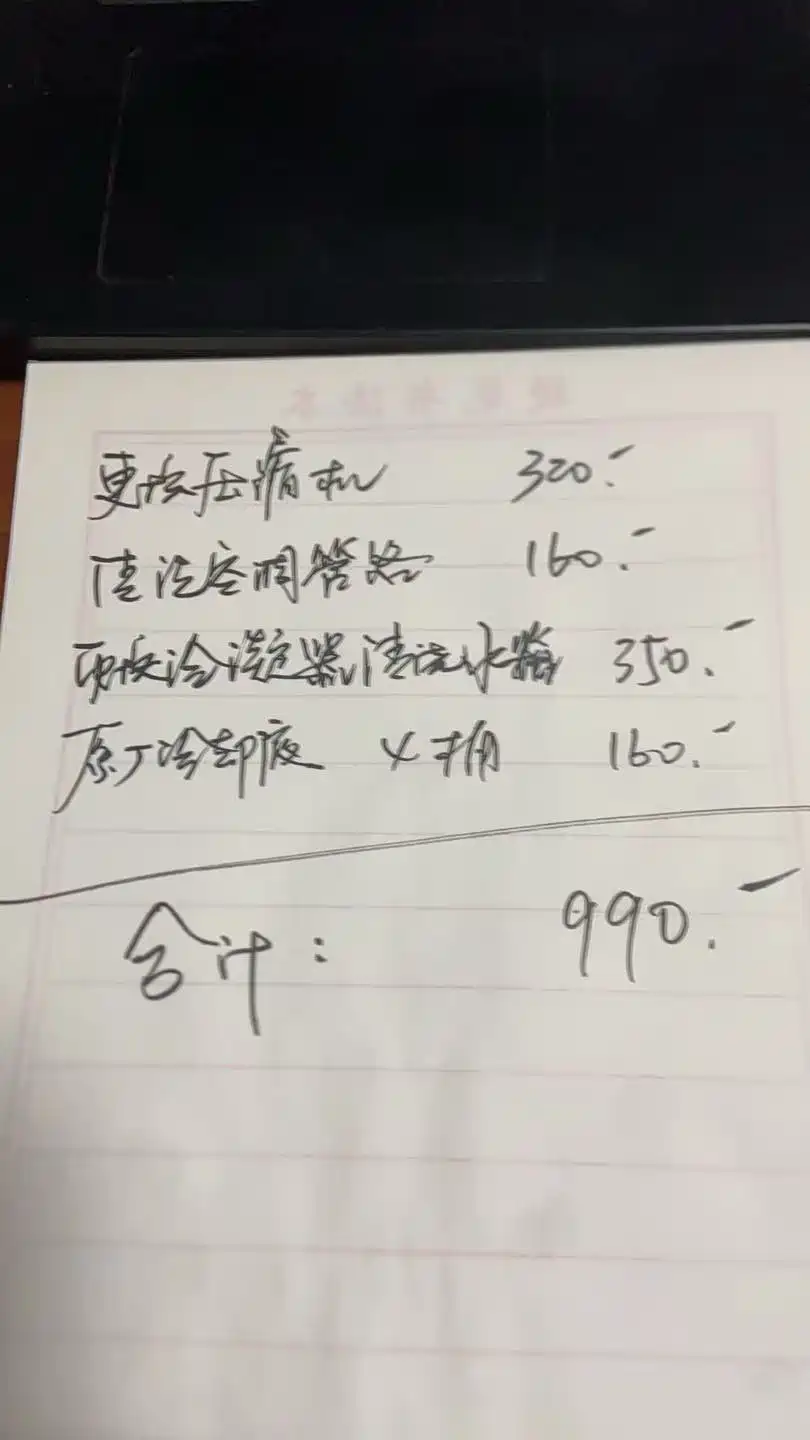 更换压缩机 320.-
清洗空调管路 160.-
更换冷凝器清洗水箱 350.-
原厂冷却液 4桶 160.-
合计: 990.-